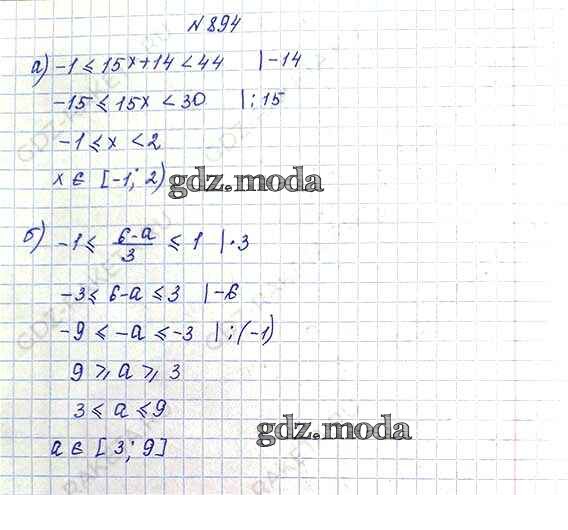 №894
а) -1 ≤ 15x+14 < 44 |-14
-15 ≤ 15x < 30 |:15
-1 ≤ x < 2
x ∈ [-1; 2)
gdz.moda
б) -1 ≤ (6-a)/3 ≤ 1 |·3
-3 ≤ 6-a ≤ 3 |-6
-9 ≤ -a ≤ -3 |:(-1)
9 ≥ a ≥ 3
3 ≤ a ≤ 9
gdz.moda
a ∈ [3; 9]